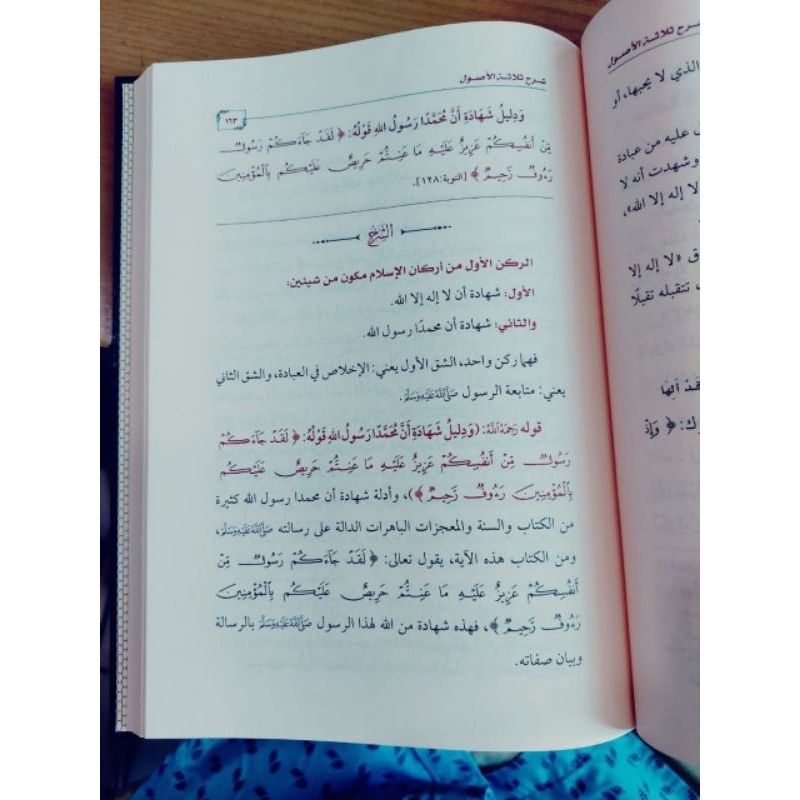 شرح ثلاثة الأصول
١٦٣
وَدليلُ شَهَادَةِ أَنَّ مُحَمَّدًا رَسُولُ اللهِ قَوْلُهُ: ﴿ لَقَدْ جَاءَكُمْ رَسُولٌ
مِّنْ أَنفُسِكُمْ عَزِيزٌ عَلَيْهِ مَا عَنِتُّمْ حَرِيصٌ عَلَيْكُم بِالْمُؤْمِنِينَ
رَءُوفٌ رَّحِيمٌ ﴾ [التوبة:١٢٨].
الشرح
الركن الأول من أركان الإسلام مكون من شيئين:
الأول: شهادة أن لا إله إلا الله.
والثاني: شهادة أن محمدًا رسول الله.
فهما ركن واحد، الشق الأول يعني: الإخلاص في العبادة، والشق الثاني
يعني: متابعة الرسول صَلَّى اللَّهُ عَلَيْهِ وَسَلَّمَ.
قوله رَحِمَهُ اللَّهُ: (وَدليلُ شَهَادَةِ أَنَّ مُحَمَّدًا رَسُولُ اللهِ قَوْلُهُ: ﴿ لَقَدْ جَاءَكُمْ
رَسُولٌ مِّنْ أَنفُسِكُمْ عَزِيزٌ عَلَيْهِ مَا عَنِتُّمْ حَرِيصٌ عَلَيْكُم
بِالْمُؤْمِنِينَ رَءُوفٌ رَّحِيمٌ ﴾)، وأدلة شهادة أن محمدا رسول الله كثيرة
من الكتاب والسنة والمعجزات الباهرات الدالة على رسالته صَلَّى اللَّهُ عَلَيْهِ وَسَلَّمَ،
ومن الكتاب هذه الآية، يقول تعالى: ﴿ لَقَدْ جَاءَكُمْ رَسُولٌ مِّنْ
أَنفُسِكُمْ عَزِيزٌ عَلَيْهِ مَا عَنِتُّمْ حَرِيصٌ عَلَيْكُم بِالْمُؤْمِنِينَ
رَءُوفٌ رَّحِيمٌ ﴾، فهذه شهادة من الله لهذا الرسول صَلَّى اللَّهُ عَلَيْهِ وَسَلَّمَ بالرسالة
وبيان صفاته.
شرح ثلاثة الأصول
الذي لا يحبها، أو
عليه من عبادة
وشهدت أنه لا
لا إله إلا الله»،
«لا إله إلا
تتقبله تقبلًا
﴿ وَإِذْ